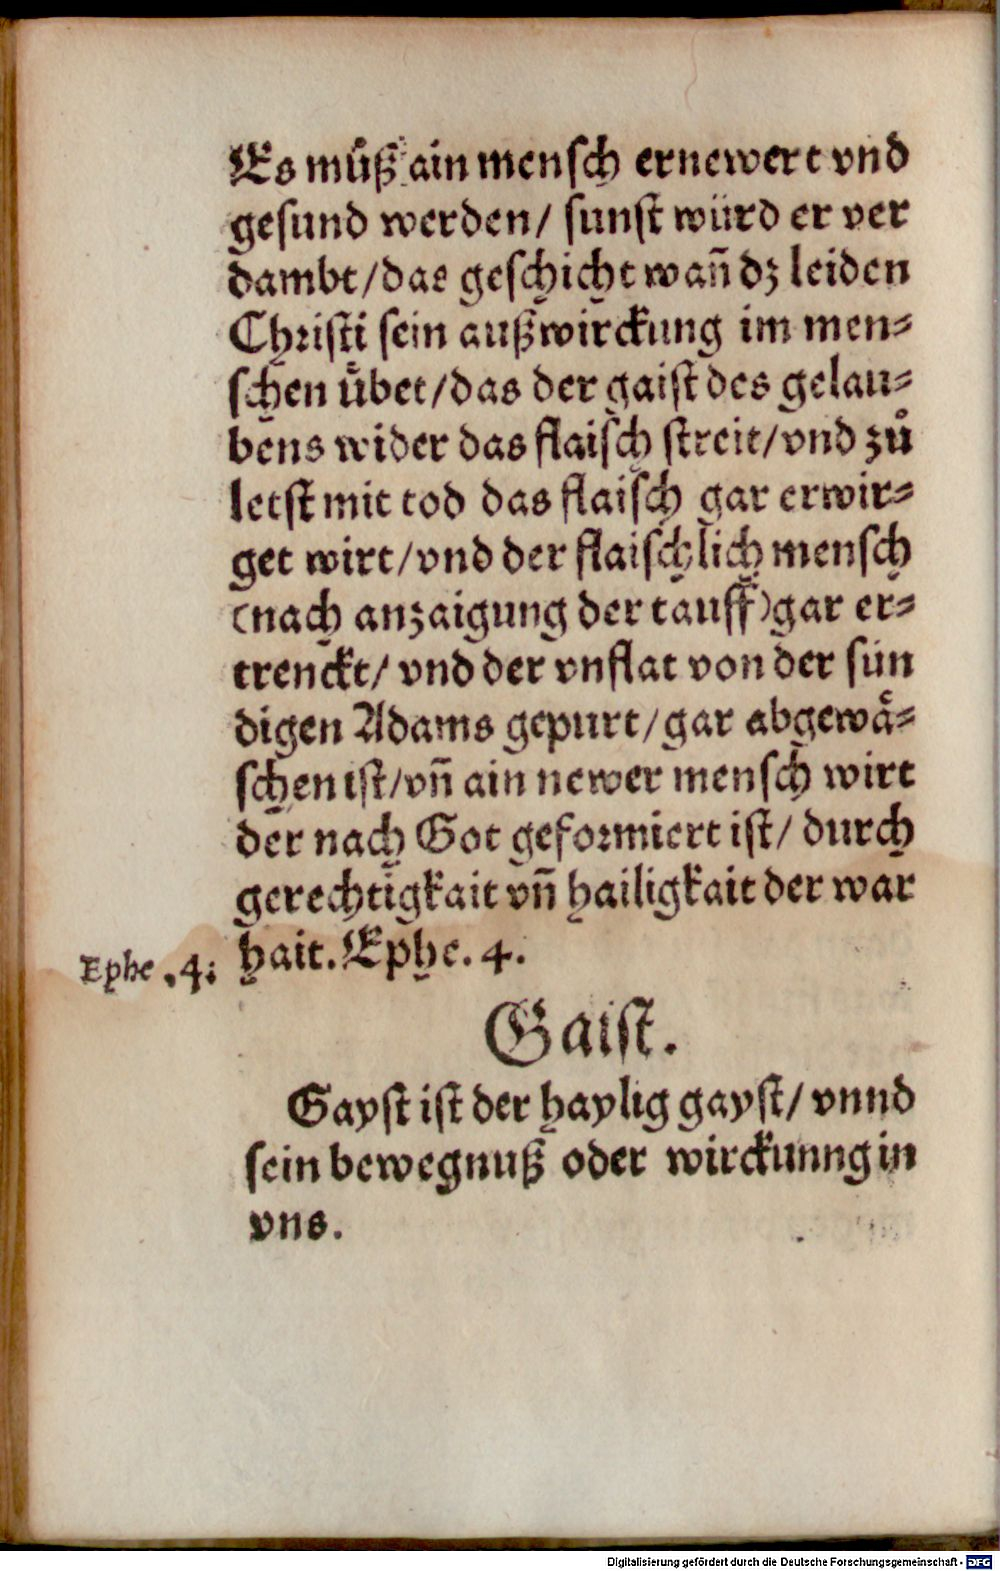 Es muͦß ain mensch ernewert vnd
gesund werden/ sunst würd er ver
dambt/das geschicht wañ dz leiden
Christi sein außwirckung im men⸗
schen uͤbet/das der gaist des gelau⸗
bens wider das flaisch streit/vnd zuͦ
letst mit tod das flaisch gar erwir⸗
get wirt/vnd der flaischlich mensch
(nach anzaigung der tauff)gar er⸗
trenckt/ vnd der vnflat von der sün
digen Adams gepurt/gar abgewaͤ⸗
schen ist/vñ ain newer mensch wirt
der nach Got geformiert ist/ durch
gerechtigkait vñ hailigkait der war
hait. Ephe. 4.
Ephe .4:
Gaist.
Gayst ist der haylig gayst/ vnnd
sein bewegnuß oder wirckunng in
vns.
Digitalisierung gefördert durch die Deutsche Forschungsgemeinschaft - DFG